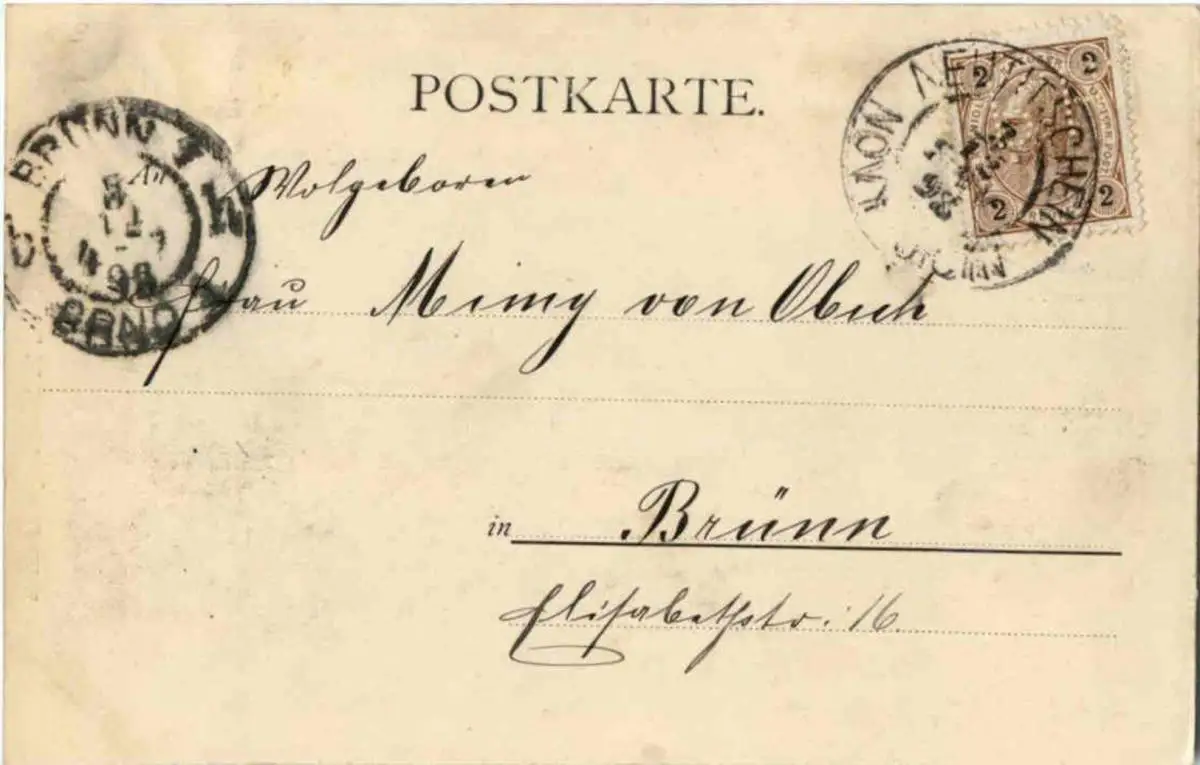 POSTKARTE.
NEUTITSCHEIN
2 2
2 2
BRÜNN
98
BRNO
Wolgeboren
Frau Mimy von Obich
in Brünn
Elisabethstr. 16